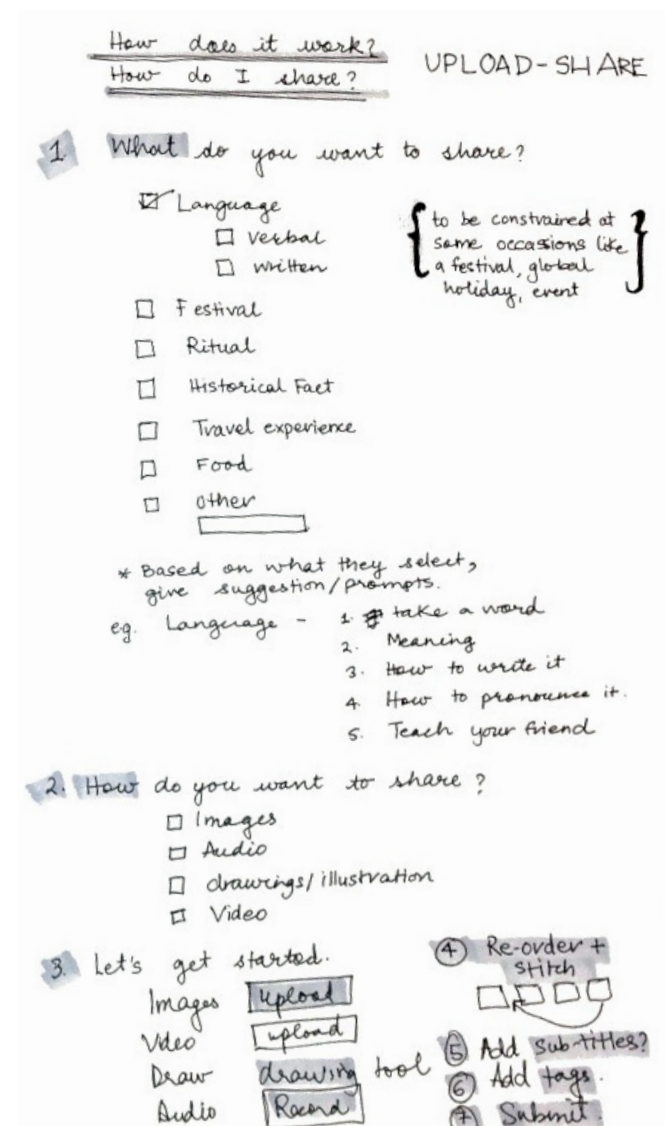 How does it work?
How do I share?
UPLOAD-SHARE
1. What do you want to share?
Language
verbal
written
{to be constrained at
some occassions like
a festival, global
holiday, event}
Festival
Ritual
Historical Fact
Travel experience
Food
other
* Based on what they select,
give suggestion/prompts.
eg. Language - 1. take a word
2. Meaning
3. How to write it
4. How to pronounce it.
5. Teach your friend
2. How do you want to share?
Images
Audio
drawings/illustration
Video
3. Let's get started.
Images upload
Video upload
Draw drawing tool
Audio Record
4 Re-order +
stitch
5 Add sub-titles?
6 Add tags.
7 Submit.